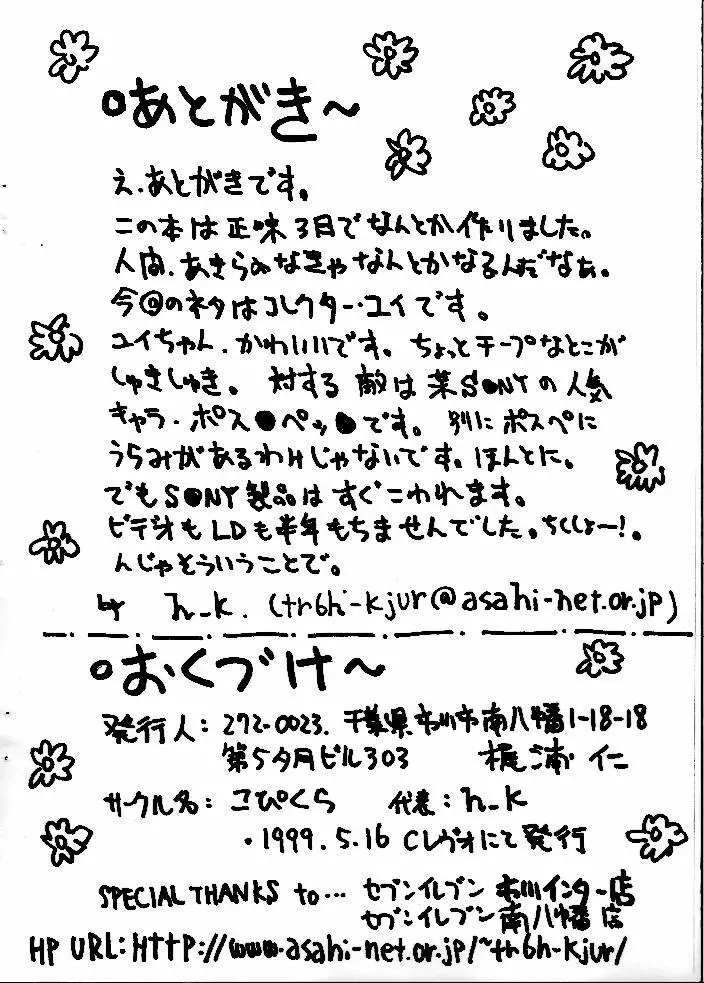 ・あとがき～
え、あとがきです。
この本は正味3日でなんとか作りました。
人間、あきらめなきゃなんとかなるんだなぁ。
今回のネタはコレクター・ユイです。
ユイちゃん、かわいいです。ちょっとチープなとこが
しゅきしゅき。対する敵は某S●NYの人気
キャラ・ポス●ペッ●です。別にポスペに
うらみがあるわけじゃないです。ほんとに。
でもS●NY製品はすぐこわれます。
ビデオもLDも半年もちませんでした。ちくしょー!。
んじゃそういうことで。
by h_k. (tr6h-kjur@asahi-net.or.jp)
・おくづけ～
発行人: 272-0023. 千葉県市川市南八幡1-18-18
第5夕月ビル303 梶浦 仁
サークル名: こぴくら 代表: h_k
・1999.5.16 Cレヴォにて発行
SPECIAL THANKS to… セブンイレブン 市川インター店
セブンイレブン 南八幡店
HP URL: HttP://www.asahi-net.or.jp/~tr6h-kjur/